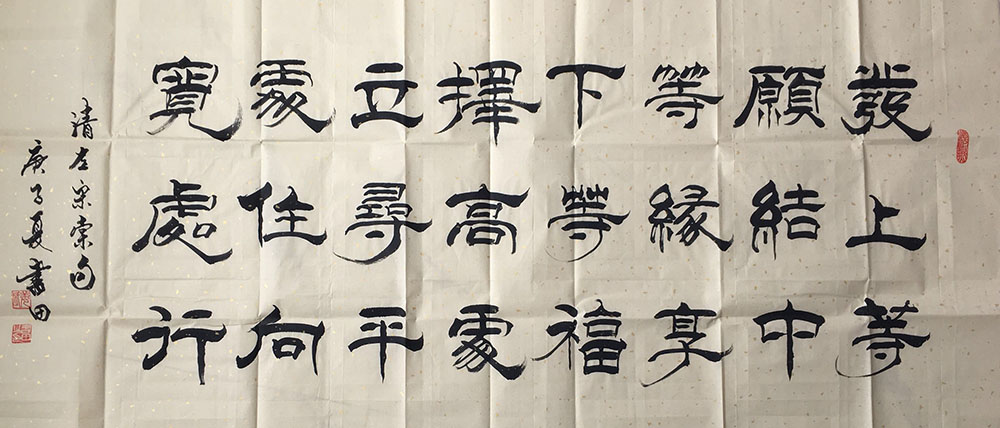 發上等
願結中
等緣享
下等福
擇高處
立尋平
處住向
寬處行
清左宗棠句
庚子夏書田